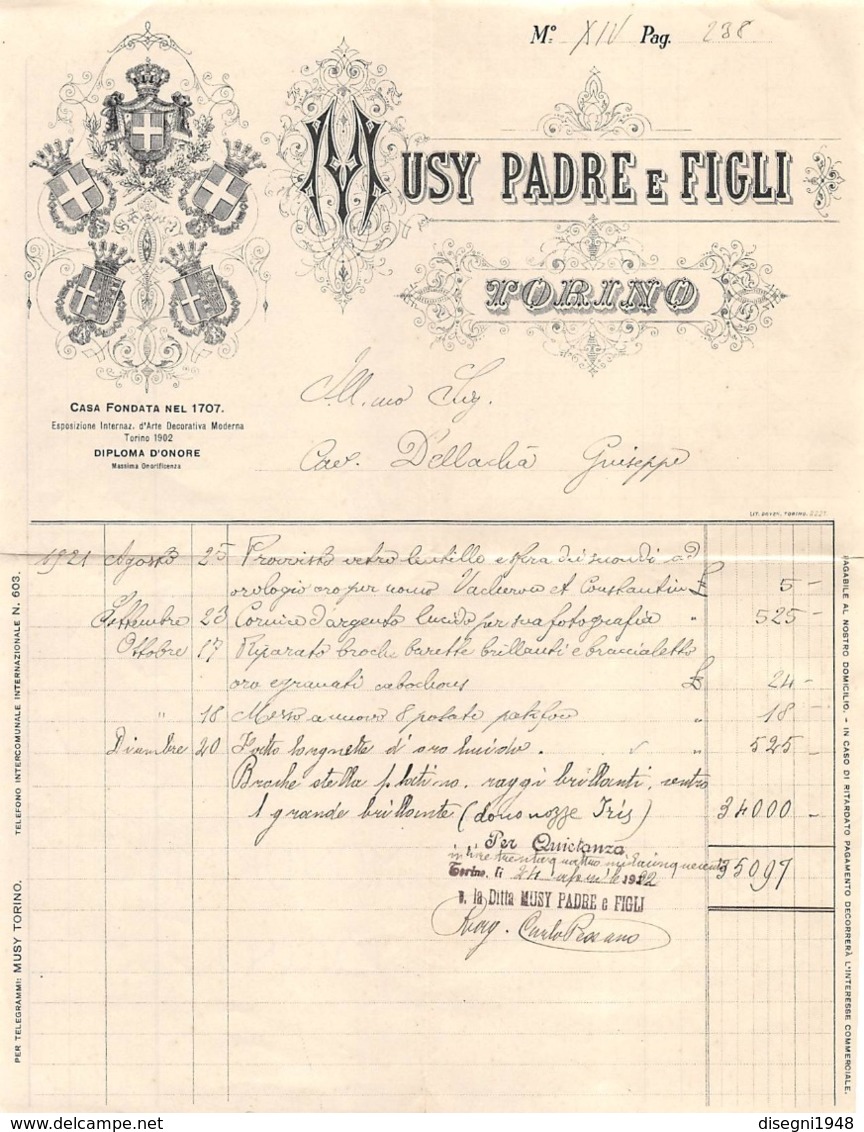 Mº XIV Pag. 238
MUSY PADRE E FIGLI
TORINO
CASA FONDATA NEL 1707.
Esposizione Internaz. d'Arte Decorativa Moderna
Torino 1902
DIPLOMA D'ONORE
Massima Onorificenza
Ill.mo Sig.
Cav. Dellachà Giuseppe
LIT. DOYEN, TORINO.
1921 Agosto 25 Provvisto vetro lentille e sfera dei secondi ad
orologio oro per uomo Vacheron et Constantin £ 5 -
Settembre 23 Cornice d'argento lucido per sua fotografia " 525 -
Ottobre 17 Riparato broche barette brillanti e braccialetto
oro e granati cabochons £ 24 -
" 18 Messo a nuovo 8 posate " 18 -
Dicembre 20 Fatto lorgnette d'oro lucido. " 525 -
Broche stella platino, raggi brillanti, centro
1 grande brillante (dono nozze Iris) 34000 -
35097
Per Quietanza
in lire trentaquattromilacinquecento
Torino, li 24 aprile 1922
p. la Ditta MUSY PADRE e FIGLI
Rag. Carlo
PER TELEGRAMMI: MUSY TORINO. TELEFONO INTERCOMUNALE INTERNAZIONALE N. 603.
PAGABILE AL NOSTRO DOMICILIO. - IN CASO DI RITARDATO PAGAMENTO DECORRERÀ L'INTERESSE COMMERCIALE.
www.delcampe.net
disegni1948